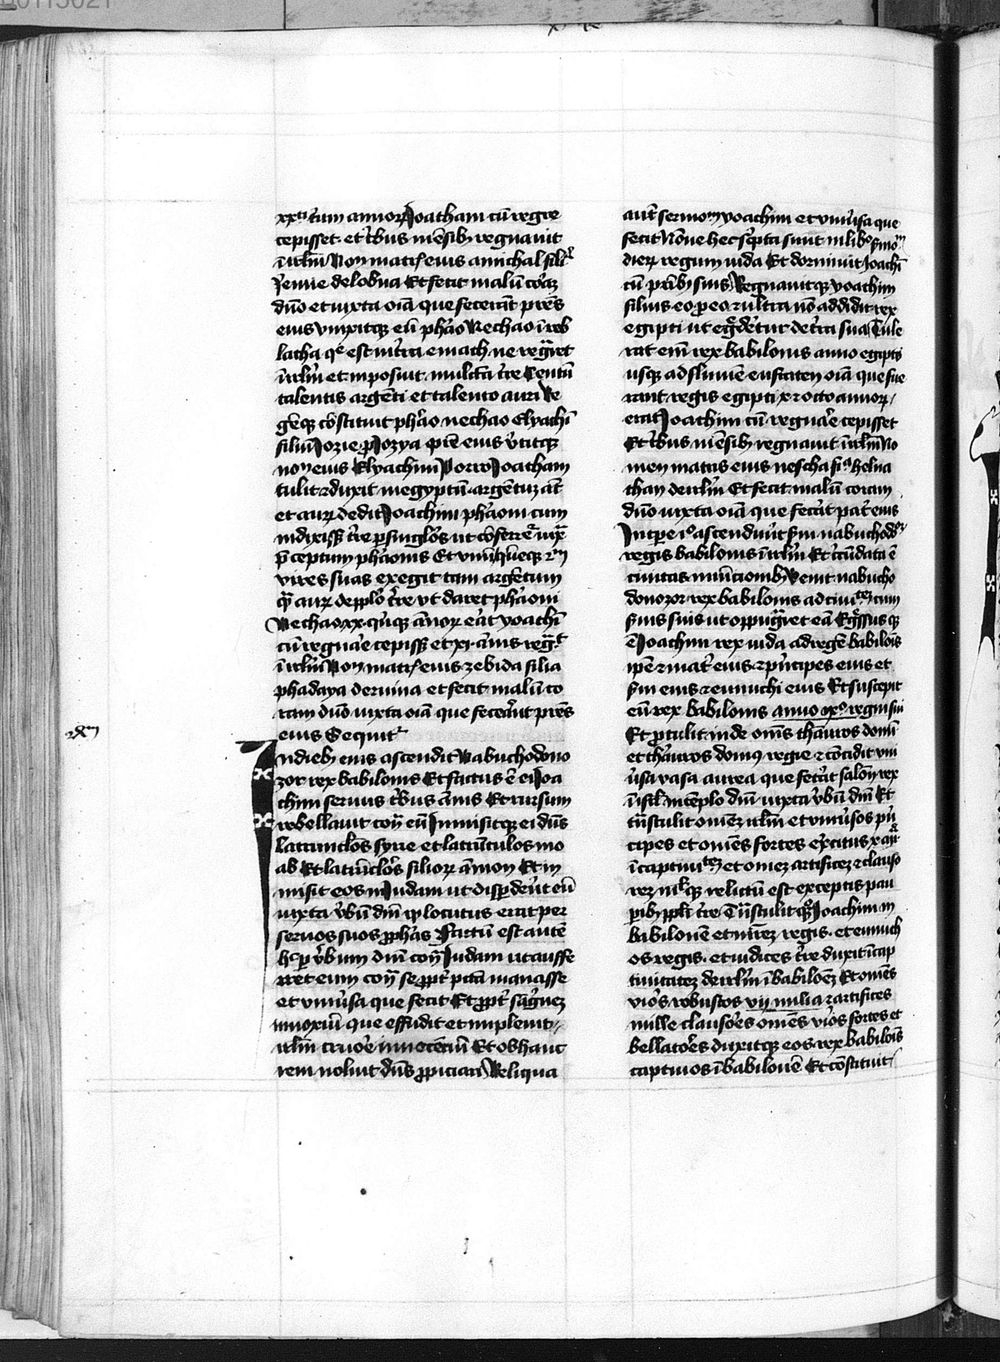 xxti trium annorum Joatham cum regre
cepisset et tribus mensibus regnauit
in irlm Nomen matris eius amithal filia
Jeremie de lobna Et fecit malum coram
domino et iuxta omnia que fecerant patres
eius vinxitque eum pharao Nechao in reb
latha que est in terra emath ne regnaret
in irlm et inposuit mulctam terre centum
talentis argenti et talento auri Re
gemque constituit pharao nechao Elyachim
filium Iozie pro Iozya patre eius vertitque
nomen eius Elyachim Porro Joatham
tulit et duxit in egyptum argentum autem
et aurum dedit Joachim pharaoni cum
indixisset terre per singulos ut conferretur iuxta
preceptum pharaonis Et vnumquemque secundum
vires suas exegit tam argentum
quam aurum de populo terre vt daret pharaoni
Nechao xx quinque annorum erat yoachim
cum regnare cepisset et xi annis regnauit
in irlm Nomen matris eius zebida filia
phadaya de ruma et fecit malum co
ram domino iuxta omnia que fecerant patres
eius Sequitur
In diebus eius ascendit Nabuchodono
zor rex babilonis Et factus est ei Joa
chim seruus tribus annis Et rursum
rebellauit contra eum Inmisitque ei dominus
latrunculos syrie et latrunculos mo
ab Et latrunculos filiorum ammon Et in
misit eos in Iudam ut disperderent eum
iuxta verbum domini quod locutus erat per
seruos suos prophetas Factum est autem
hoc per verbum domini contra Iudam ut auffe
rret eum coram se propter peccata manasse
et vniuersa que fecit Et propter sanguinem
innoxium que effudit et impleuit
irlm cruore innocentum Et ob hanc
rem noluit dominus propiciari Reliqua
autem sermonum yoachim et vniuersa que
fecit Nonne hec scripta sunt in libro sermo
dierum regum iuda Et dormiuit Joachim
cum patribus suis Regnauitque yoachim
filius eo pro eo et ultra non addidit rex
egipti ut egrederetur de terra sua Tule
rat enim rex babilonis anno egipti
usque ad fluuium eufraten omnia que fue
rant regis egipti x et octo annorum
erat Joachim cum regnare cepisset
Et tribus mensibus regnauit in irlm No
men matris eius nescha filia helna
than de irlm Et fecit malum coram
domino iuxta omnia que fecerat pater eius
In tempore illo ascenderunt serui nabuchodo
regis babilonis in irlm Et circumdata est
ciuitas municionibus Venit nabucho
donozor rex babilonis ad ciuitatem cum
seruis suis ut oppugnaret eam Egressusque
est Joachim rex iuda ad regem babilonis
ipse et mater eius et principes eius et
serui eius et eunuchi eius Et suscepit
eum rex babilonis anno ixo regni sui
Et protulit inde omnes thauros domini
et thauros domus regie et concidit vni
uersa vasa aurea que fecerat salomon rex
isrl in templo domini iuxta verbum domini Et
transtulit omnem irlm et vniuersos prin
cipes et omnes fortes exercitus x milia
in captiuitatem et omnem artificem et clauso
rem nichilque relictum est exceptis pau
peribus populi terre Transtulitque Joachim in
babilonem et matrem regis et eunuch
os regis et iudices terre duxit in cap
tiuitatem de irlm in babilonem Et omnes
viros robustos vij milia et artifices
mille clausores omnes viros fortes et
bellatores duxitque eos rex babilonis
captiuos in babilonem Et constituit